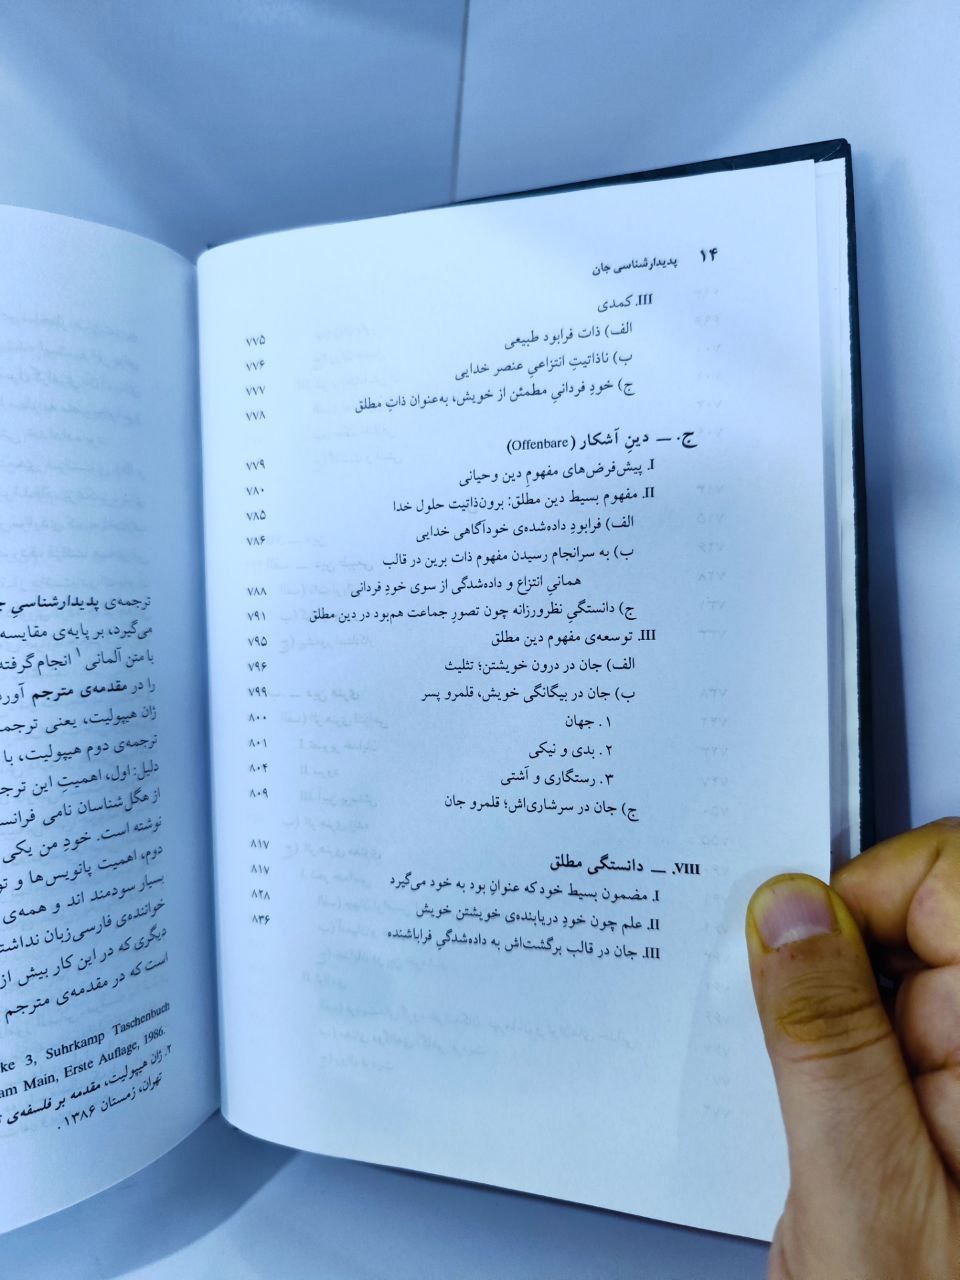 ۱۴ پدیدارشناسی جان
III. کمدی ۷۷۵
الف) ذات فرابود طبیعی ۷۷۶
ب) ناذاتیتِ انتزاعیِ عنصر خدایی ۷۷۷
ج) خودِ فردانیِ مطمئن از خویش، به‌عنوان ذاتِ مطلق ۷۷۸
ج. — دینِ آشکار (Offenbare) ۷۷۹
I. پیش‌فرض‌های مفهومِ دین وحیانی ۷۸۰
II. مفهوم بسیط دین مطلق: برون‌ذاتیت حلول خدا ۷۸۵
الف) فرابودِ داده‌شده‌ی خودآگاهی خدایی ۷۸۶
ب) به سرانجام رسیدن مفهوم ذات برین در قالب
همانیِ انتزاع و داده‌شدگی از سوی خودِ فردانی ۷۸۸
ج) دانستگیِ نظرورزانه چون تصورِ جماعت هم‌بود در دین مطلق ۷۹۱
III. توسعه‌ی مفهوم دین مطلق ۷۹۵
الف) جان در درون خویشتن؛ تثلیث ۷۹۶
ب) جان در بیگانگی خویش، قلمرو پسر ۷۹۹
۱. جهان ۸۰۰
۲. بدی و نیکی ۸۰۱
۳. رستگاری و آشتی ۸۰۴
ج) جان در سرشاری‌اش؛ قلمرو جان ۸۰۹
VIII. — دانستگی مطلق ۸۱۷
I. مضمون بسیط خود که عنوانِ بود به خود می‌گیرد ۸۱۷
II. علم چون خودِ دریابنده‌ی خویشتن خویش ۸۲۸
III. جان در قالب برگشت‌اش به داده‌شدگیِ فراباشنده ۸۳۶
ترجمه‌ی پدیدارشناسیِ
می‌گیرد، بر پایه‌ی مقایسه
با متن آلمانی۱ انجام گرفته
را در مقدمه‌ی مترجم
ژان هیپولیت، یعنی
ترجمه‌ی دوم هیپولیت، با
دلیل: اول، اهمیتِ این
از هگل‌شناسان نامی
نوشته است. خودِ من یکی
دوم، اهمیت پانویس‌ها و
بسیار سودمند اند و همه‌ی
خواننده‌ی فارسی‌زبان
دیگری که در این کار بیش از
است که در مقدمه‌ی مترجم
3, Suhrkamp Taschenbuch
Main, Erste Auflage, 1986.
۲. ژان هیپولیت، مقدمه بر فلسفه‌ی
تهران، زمستان ۱۳۸۶.